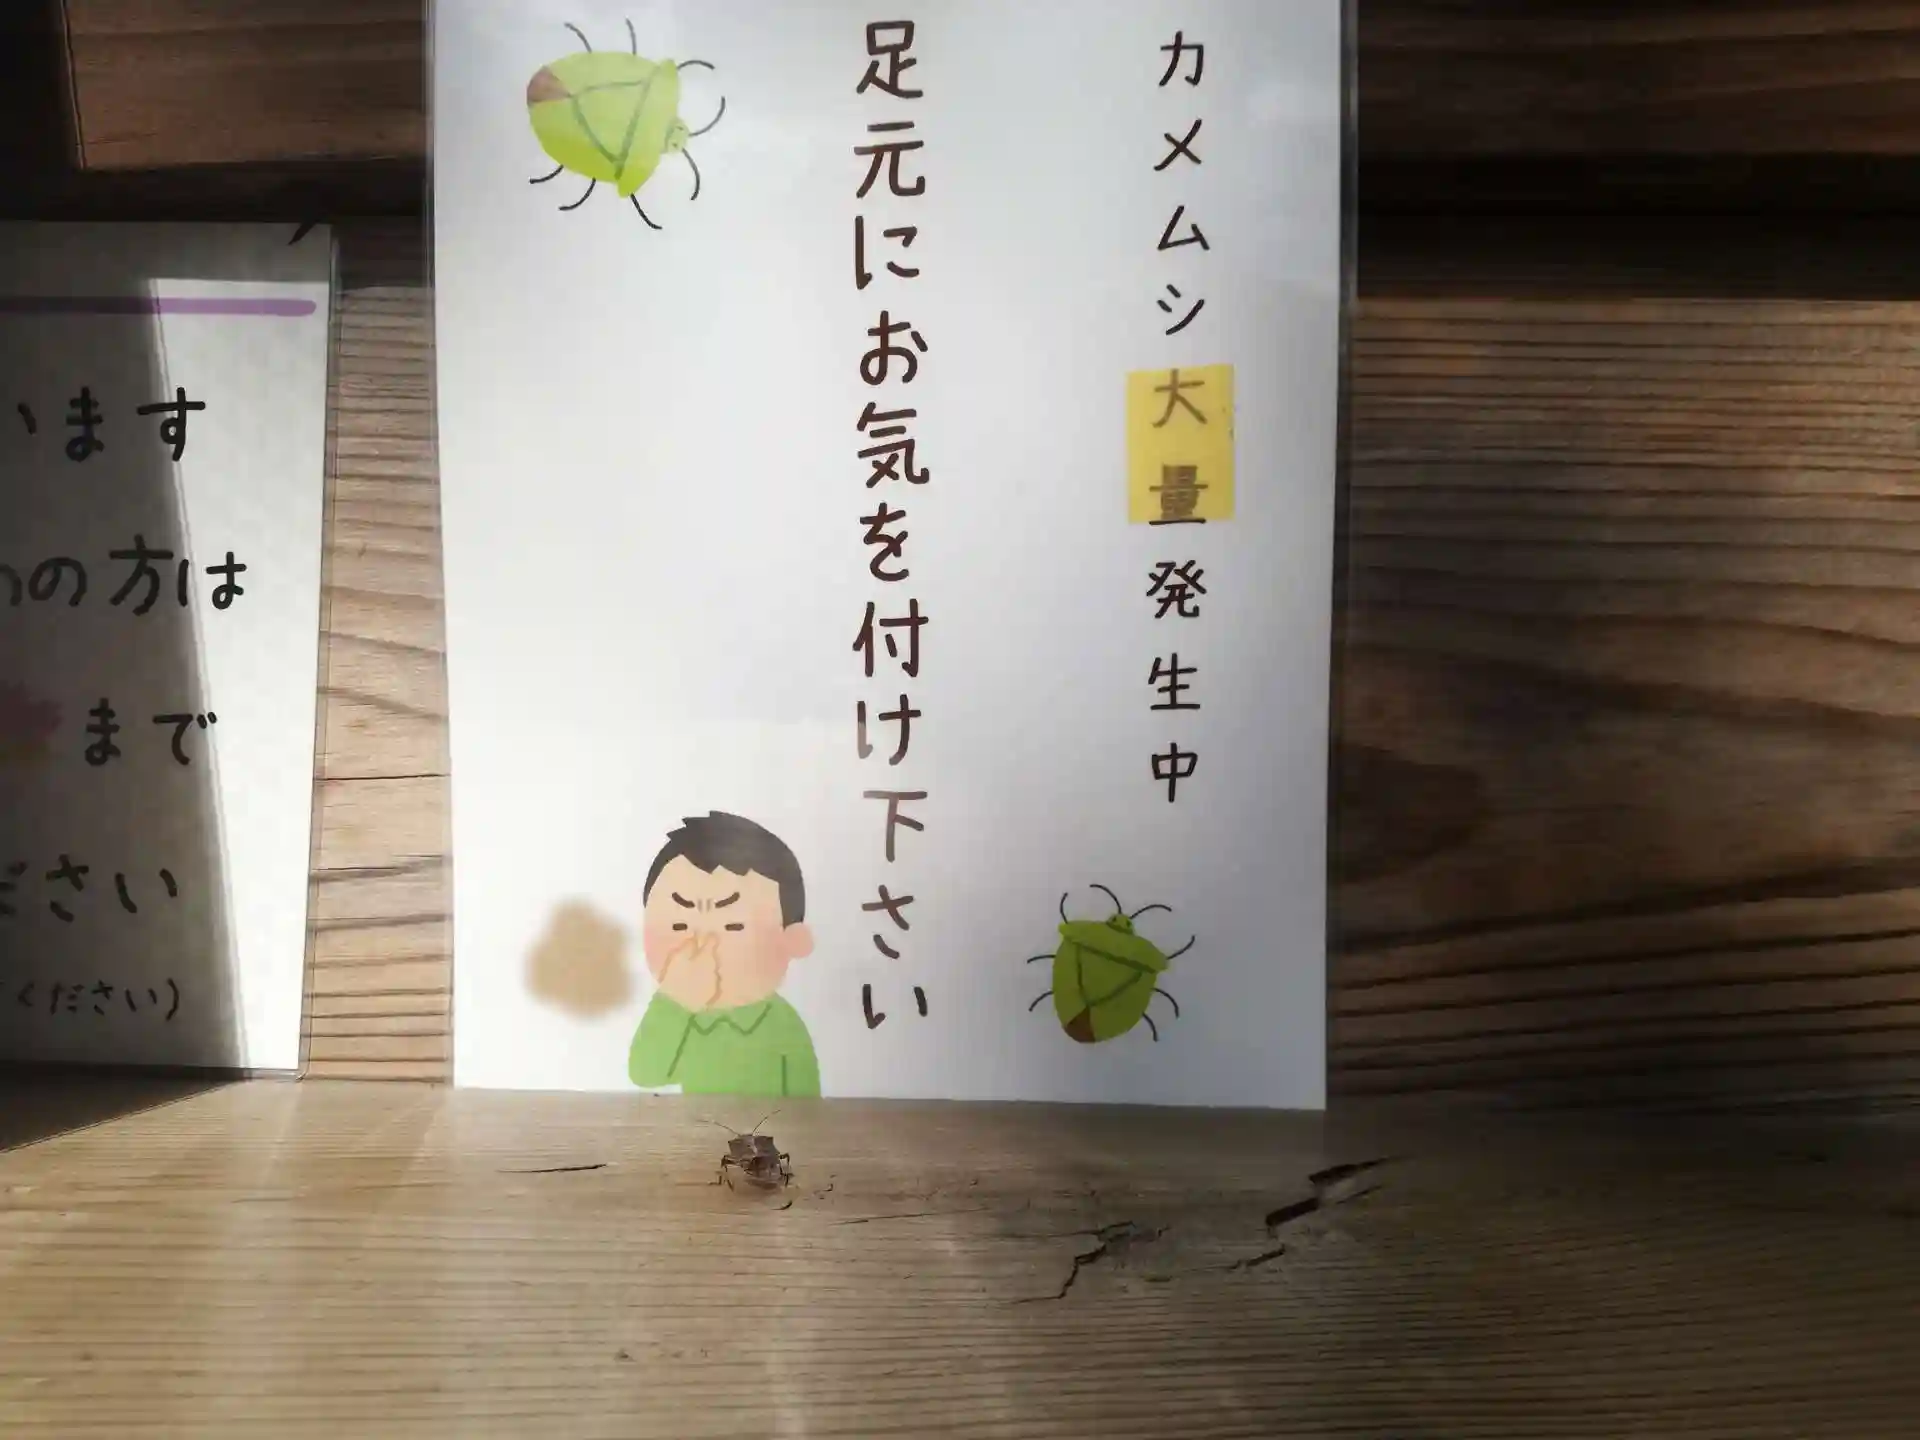 カメムシ大量発生中
足元にお気を付け下さい
います
の方は
まで
ださい
ください)